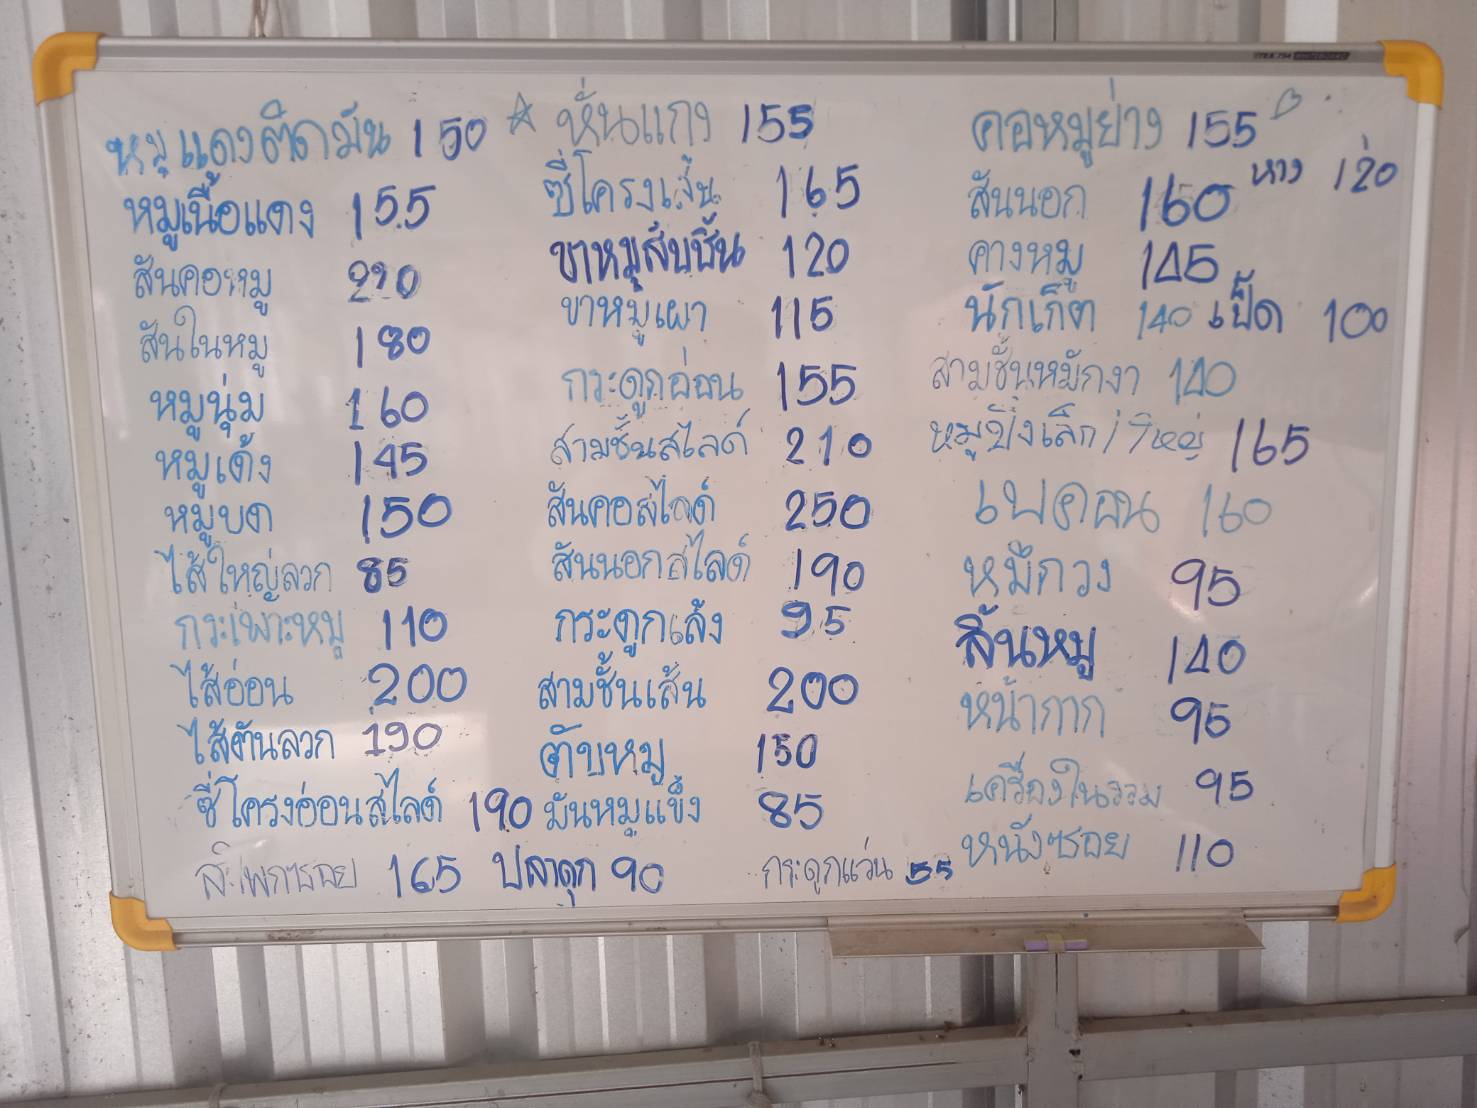 หมูแดงติดมัน 150
หมูเนื้อแดง 155
สันคอหมู 210
สันในหมู 180
หมูนุ่ม 160
หมูเด้ง 145
หมูบด 150
ไส้ใหญ่ลวก 85
กระเพาะหมู 110
ไส้อ่อน 200
ไส้ตันลวก 190
ซี่โครงอ่อนสไลด์ 190
สะโพกซอย 165
ปลาดุก 90
☆ หั่นแกง 155
ซี่โครงเส้น 165
ขาหมูสับชิ้น 120
ขาหมูเผา 115
กระดูกอ่อน 155
สามชั้นสไลด์ 210
สันคอสไลด์ 250
สันนอกสไลด์ 190
กระดูกเล้ง 95
สามชั้นเส้น 200
ตับหมู 150
มันหมูแข็ง 85
กระดูกแว่น 55
คอหมูย่าง 155
สันนอก 160 หาง 120
คางหมู 145
นักเก็ต 140 เป็ด 100
สามชั้นหมักงา 140
หมูปิ้งเล็ก/ใหญ่ 165
เบคอน 160
หมึกวง 95
ลิ้นหมู 140
หน้ากาก 95
เครื่องในรวม 95
หนังซอย 110